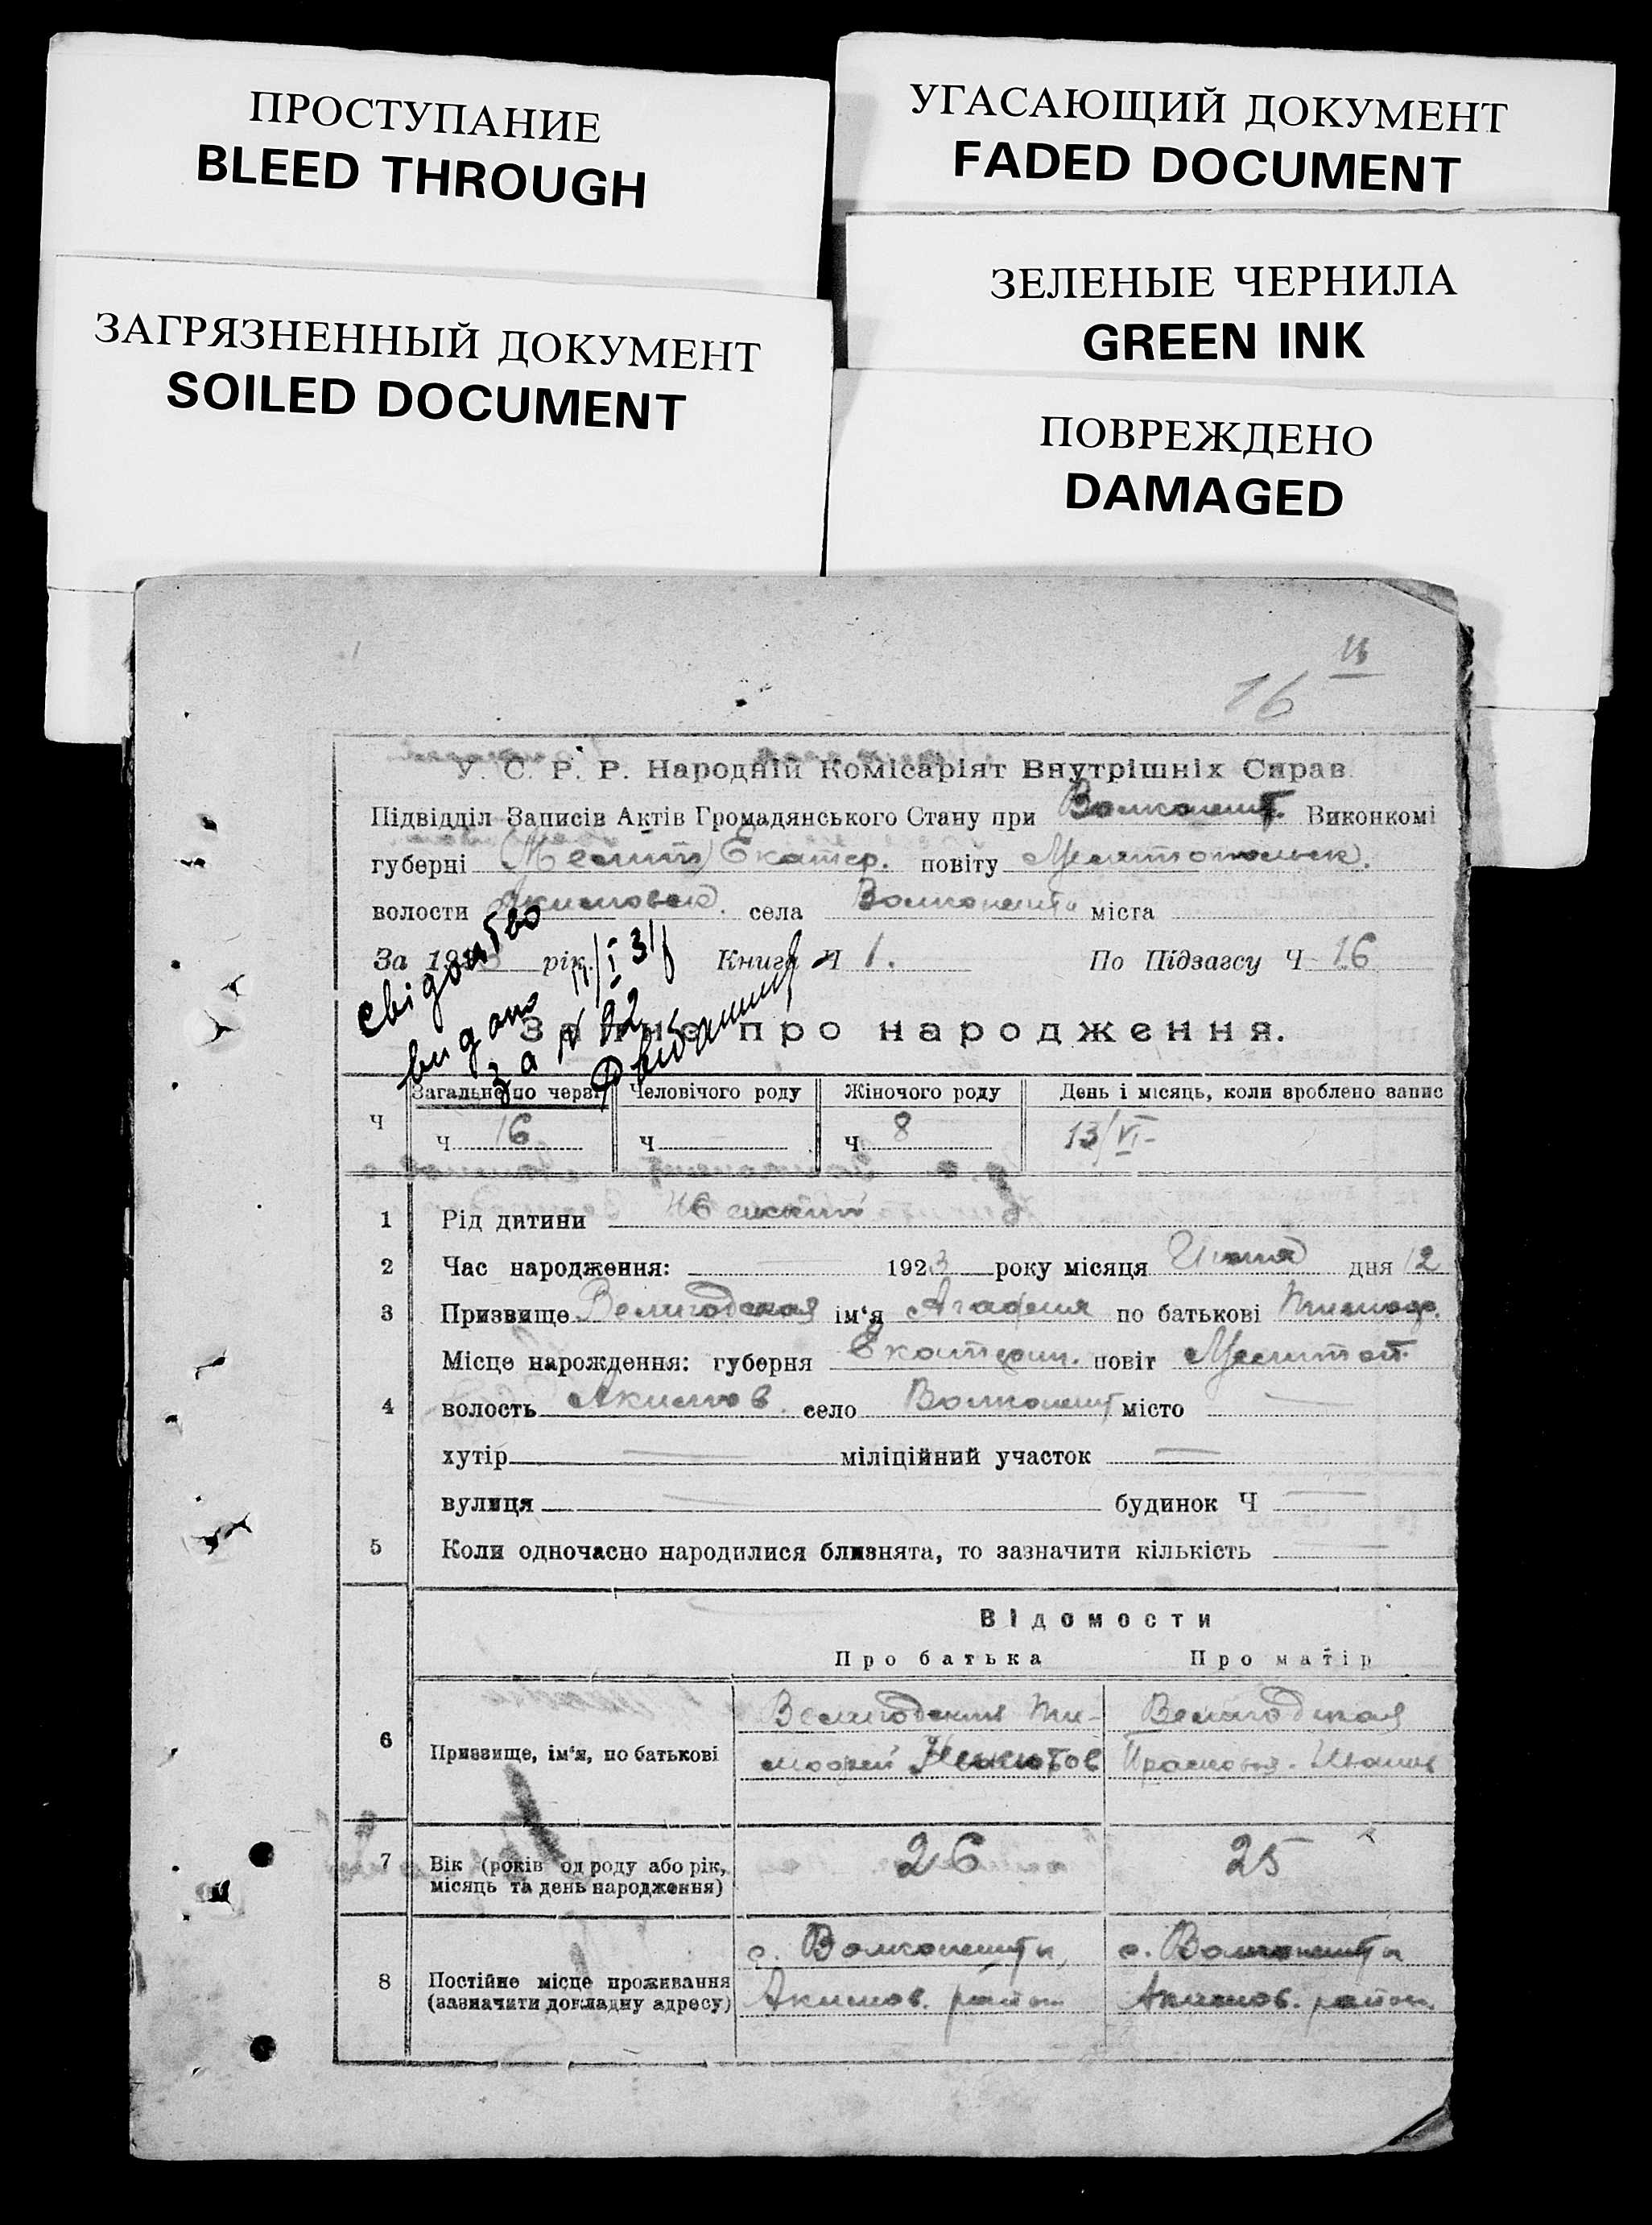 ПРОСТУПАНИЕ
BLEED THROUGH
ЗАГРЯЗНЕННЫЙ ДОКУМЕНТ
SOILED DOCUMENT
УГАСАЮЩИЙ ДОКУМЕНТ
FADED DOCUMENT
ЗЕЛЕНЫЕ ЧЕРНИЛА
GREEN INK
ПОВРЕЖДЕНО
DAMAGED
16
У. С. Р. Р. Народній Комісаріят Внутрішніх Справ.
Підвідділ Записів Актів Громадянського Стану при Волконешт. Виконкомі
губерні (Мелит) Екатер. повіту Мелитопольск.
волости Акимовск. села Волконешты міста
За 1923 рік. Книга Ч 1. По Підзагсу Ч 16
свідоцтво
видано 11/I 31
за N 22
Запис про народження.
Загальне по черзі Человічого роду Жіночого роду День і місяць, коли зроблено запис
Ч Ч 16 Ч — Ч 8 13/VI-
1 Рід дитини Женский
2 Час народження: — 1923 року місяця Июня дня 12
3 Призвище Великодская ім'я Агафия по батькові Тимоф.
Місце нарождення: губерня Екатерин. повіт Мелитоп.
4 волость Акимов. село Волконешт місто —
хутір — міліційний участок —
вулиця — будинок Ч —
5 Коли одночасно народилися близнята, то зазначити кількість —
Відомости
Про батька Про матір
6 Призвище, ім'я, по батькові
Великодский Ти-
мофей
Великодская
Прасковья. Иванов
7 Вік (років од роду або рік,
місяць та день народження)
26 25
8 Постійне місце проживання
(зазначити докладну адресу)
с. Волконешты,
Акимов. район
с. Волконешты
Акимов. район.